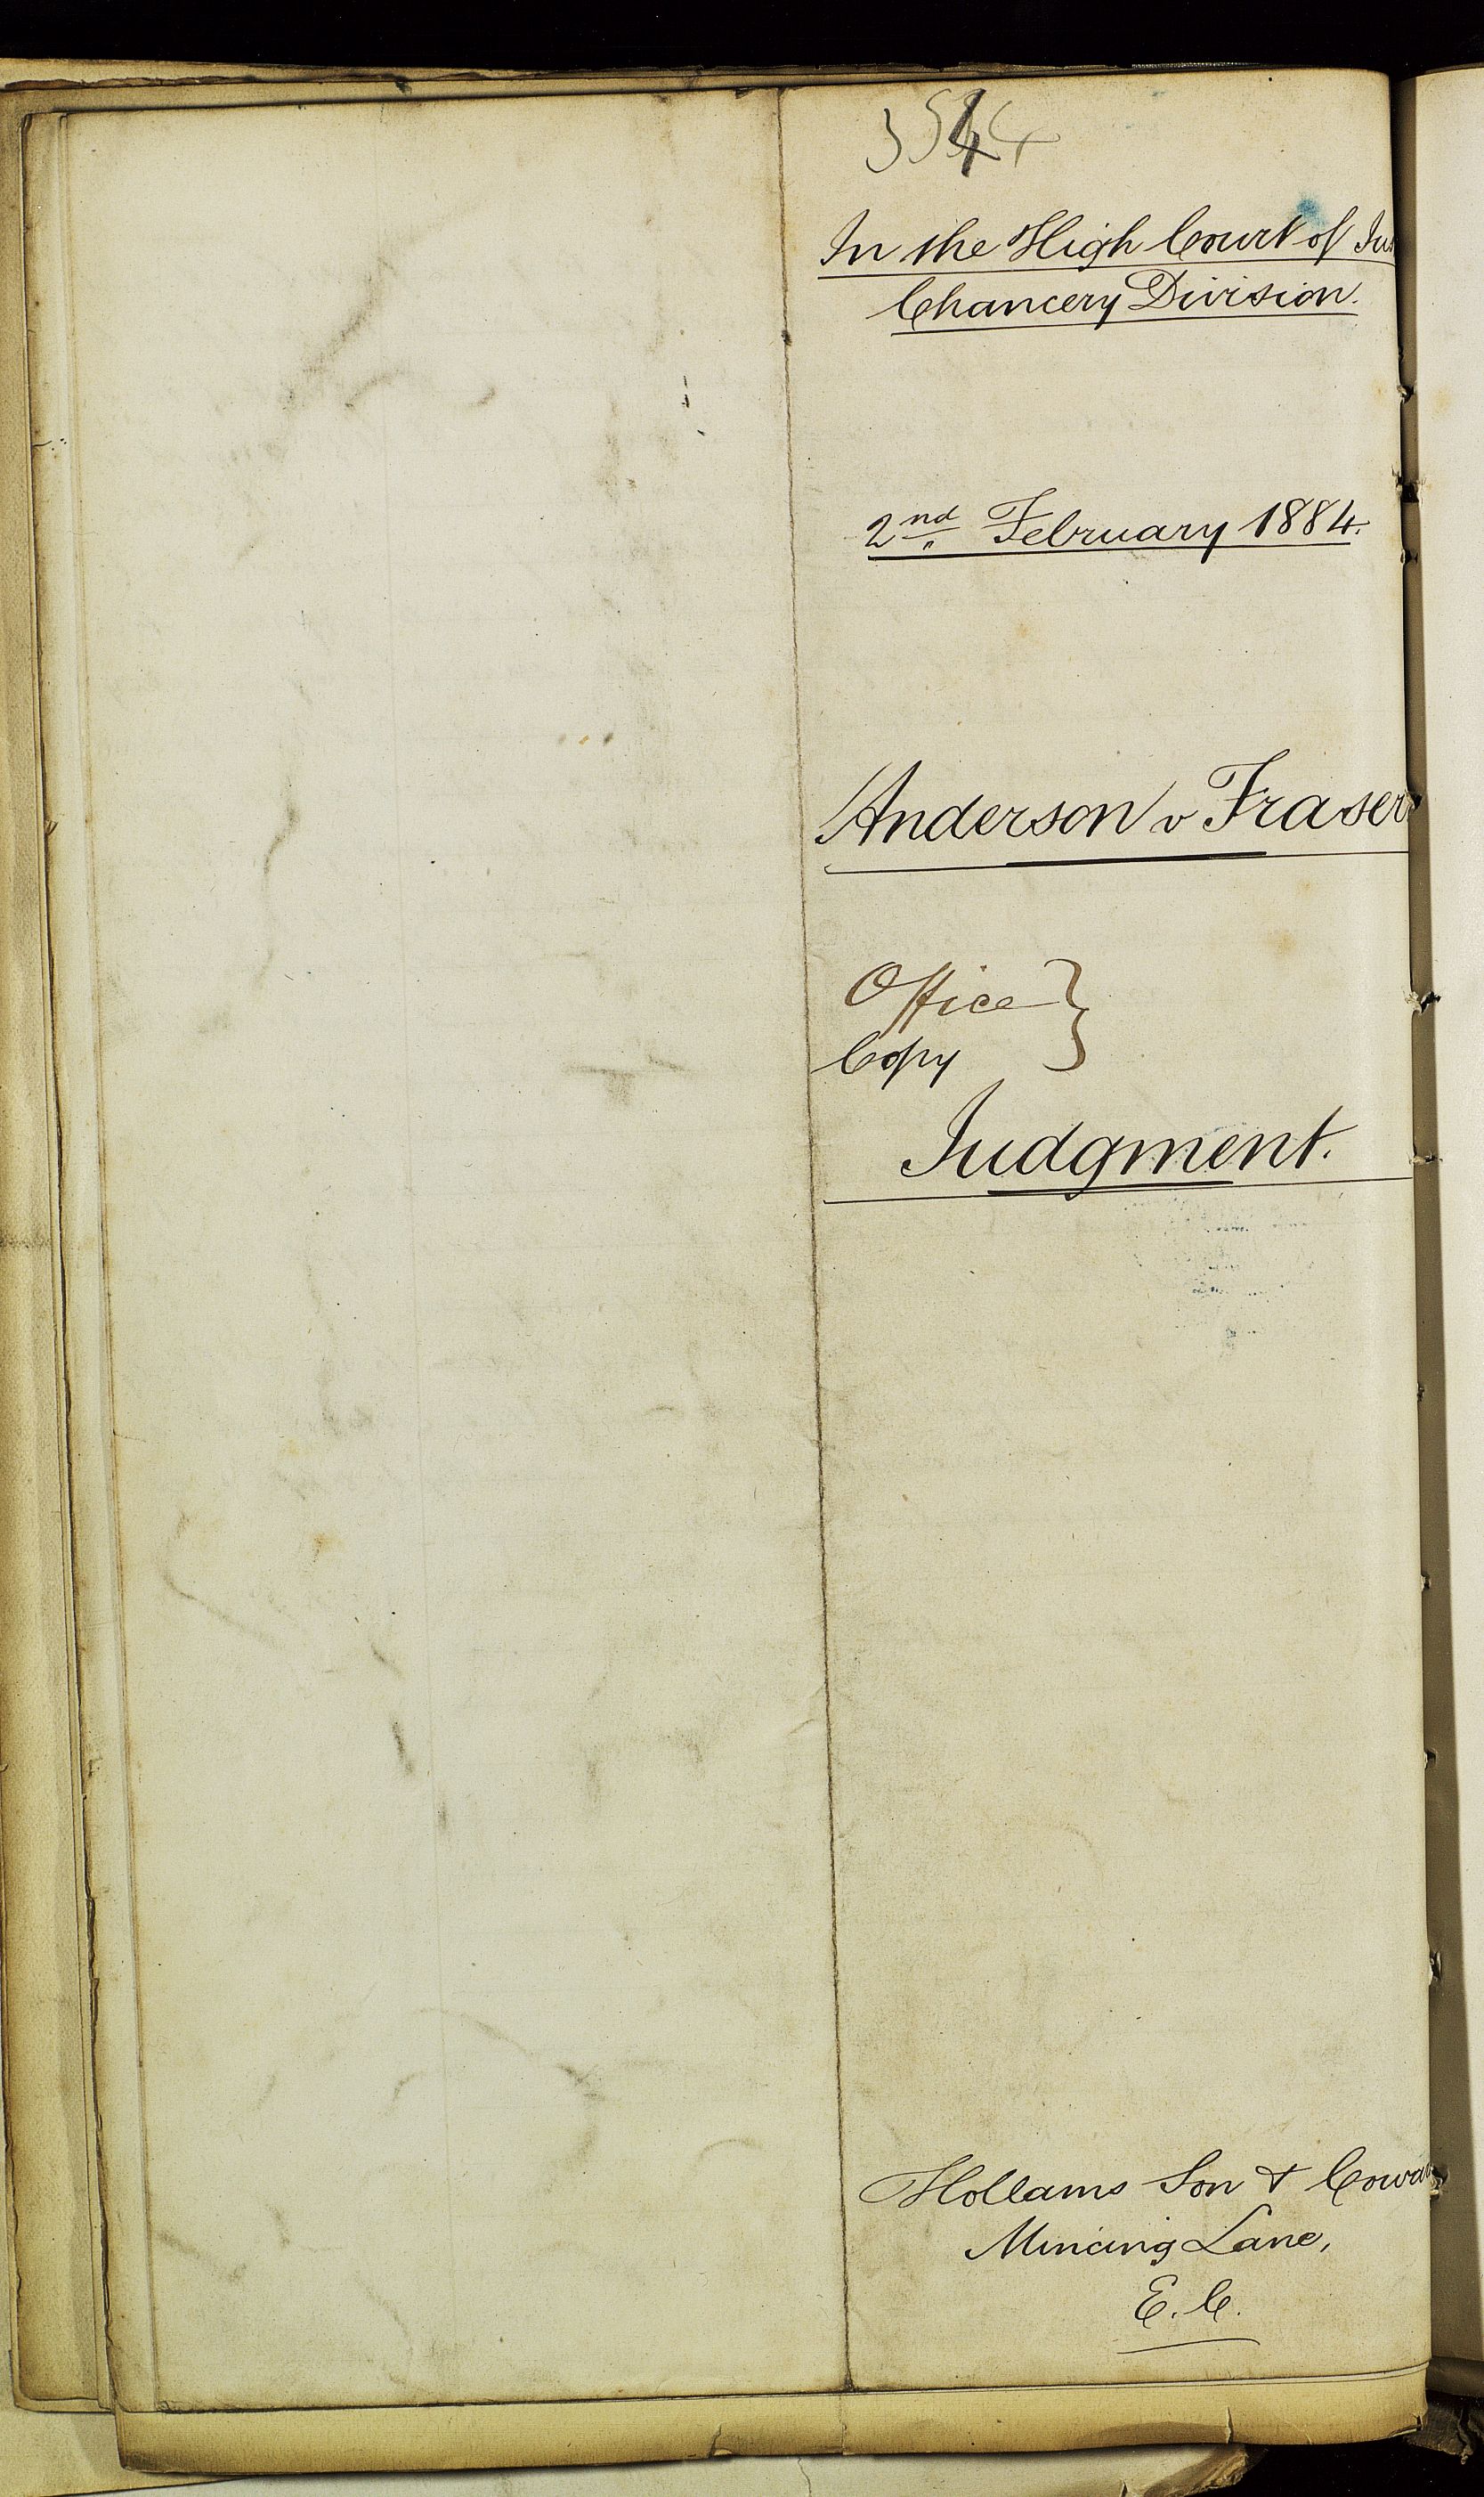 In the High Court of Jus
Chancery Division.
2nd February 1884.
Anderson v Fraser
Office
Copy
Judgment.
Hollams Son & Cowa
Mincing Lane,
E.C.